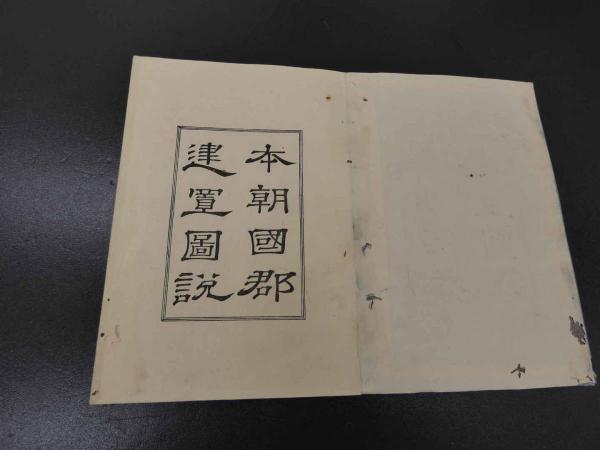 本朝國郡
建置圖説